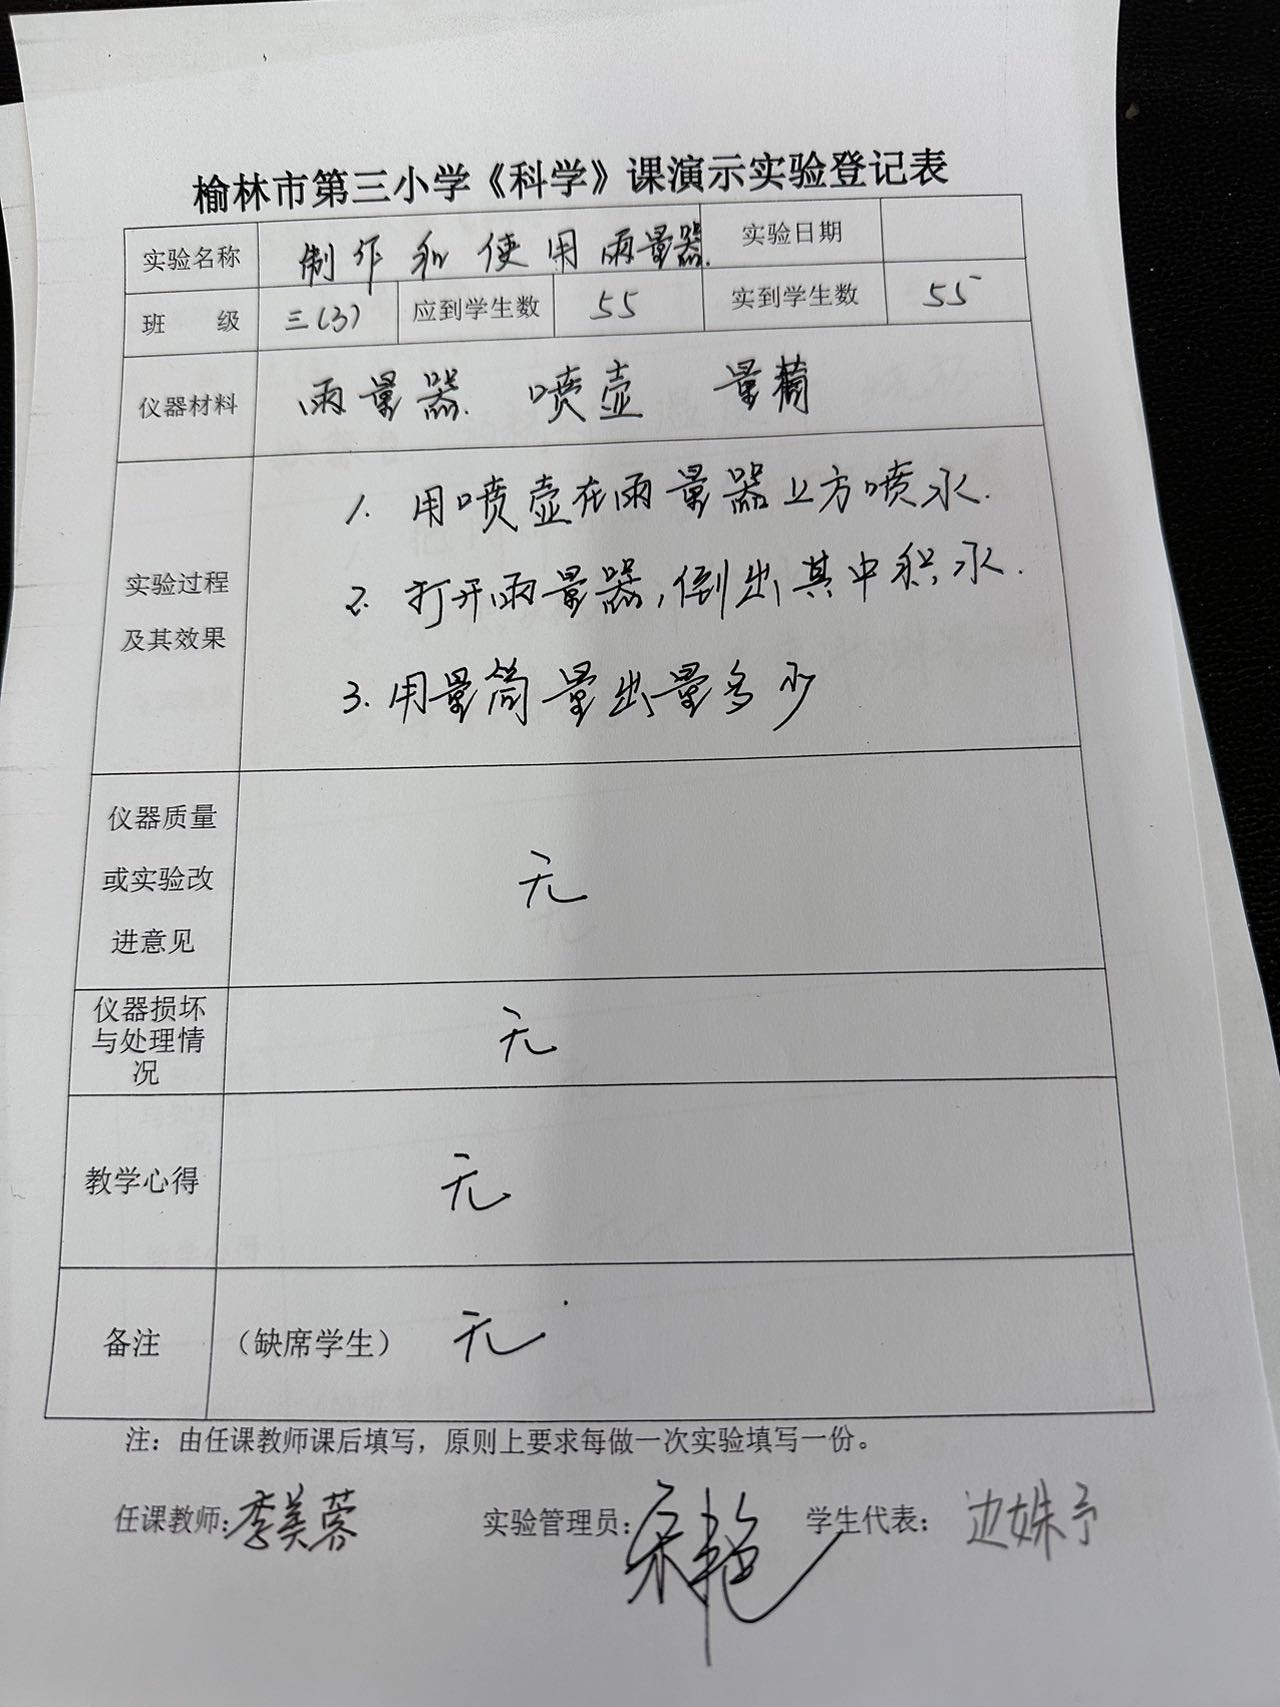 榆林市第三小学《科学》课演示实验登记表
实验名称 制作和使用雨量器 实验日期
班 级 三(3) 应到学生数 55 实到学生数 55
仪器材料 雨量器 喷壶 量筒
1. 用喷壶在雨量器上方喷水.
实验过程
及其效果
2. 打开雨量器,倒出其中积水.
3. 用量筒量出量多少
仪器质量
或实验改
进意见
无
仪器损坏
与处理情
况
无
教学心得 无
备注 (缺席学生) 无
注:由任课教师课后填写,原则上要求每做一次实验填写一份。
任课教师:李美蓉 实验管理员: 学生代表:边姝予